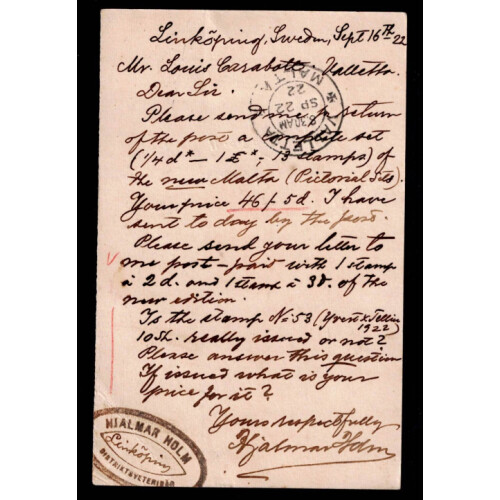 Linköping, Sweden, Sept 16th 22
Mr. Louis Carabott Valletta.
Dear Sir.
Please send me p. return
of the post a complete set
(1/4 d* – 1 £*, 15 stamps) of
the new Malta (Pictorial Sets).
Your price 46/- 5d. I have
sent to day by the post.
Please send your letter to
me post-paid with 1 stamp
à 2d. and 1 stamp à 3d. of the
new edition.
Is the stamp No 53 (Yvert & Tellier
1922)
10sh. really issued or not?
Please answer this question
If issued what is your
price for it?
Yours respectfully
Hjalmar Holm
VALLETTA
MALTA
8.30AM
SP 22
22
HJALMAR HOLM
Linköping
DISTRIKTSVETERINÄR